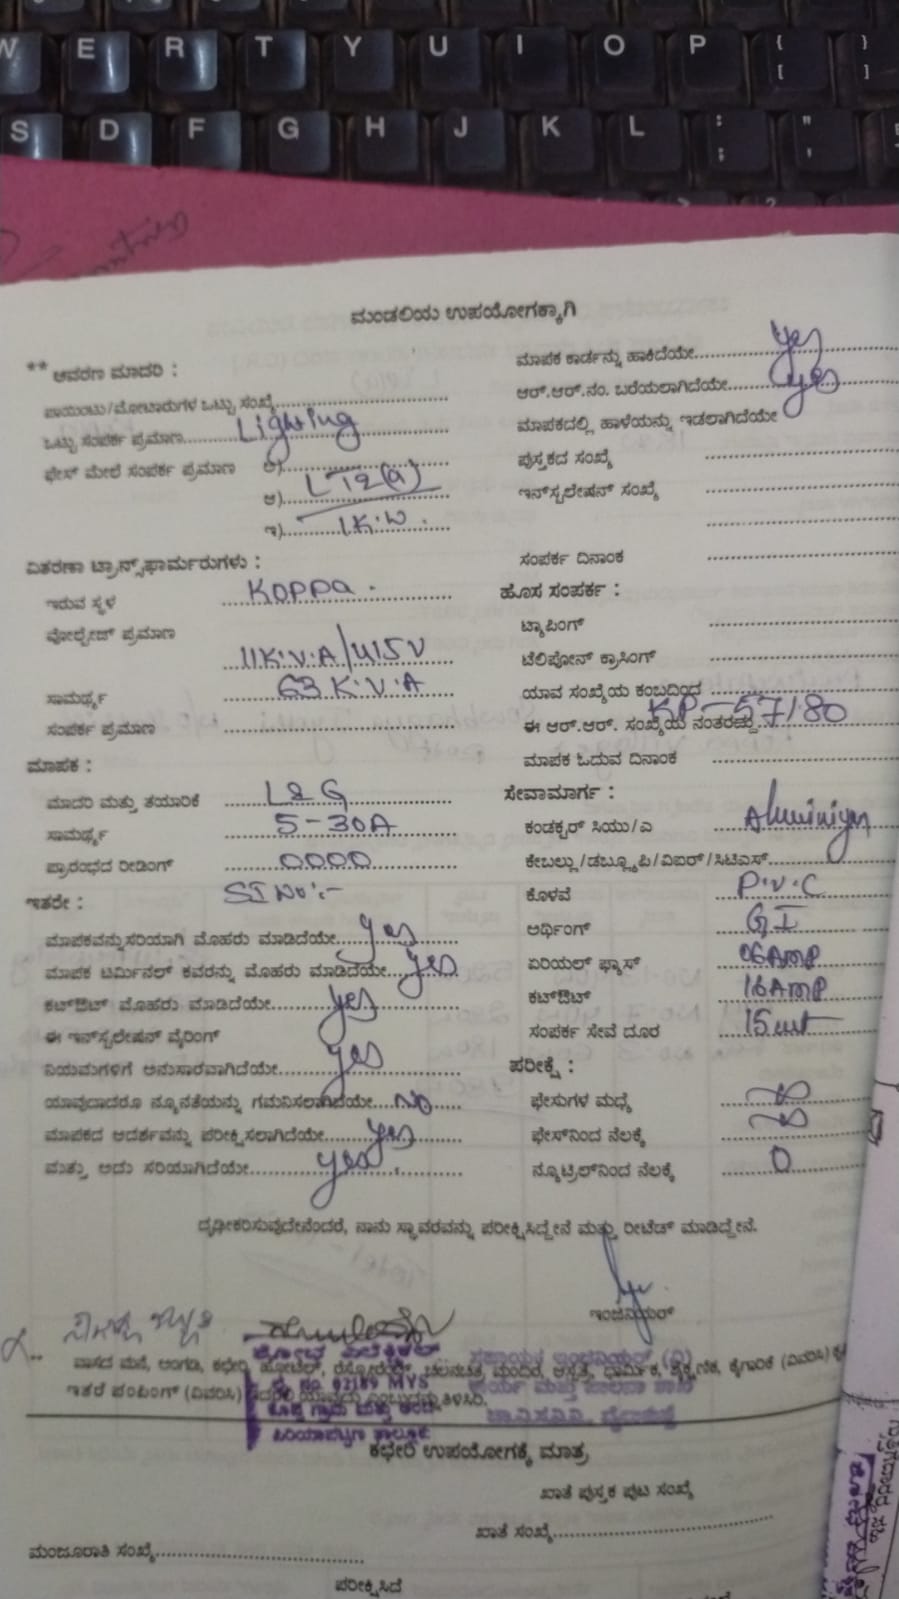 W E R T Y U I O P { [ } ]
S D F G H J K L : ; " '
ಮಂಡಲಿಯ ಉಪಯೋಗಕ್ಕಾಗಿ
** ಆವರಣ ಮಾದರಿ :
ಪಾಯಿಂಟು/ಮೋಟಾರುಗಳ ಒಟ್ಟು ಸಂಖ್ಯೆ
ಒಟ್ಟು ಸಂಪರ್ಕ ಪ್ರಮಾಣ Lighting
ಫೇಸ್ ಮೇಲೆ ಸಂಪರ್ಕ ಪ್ರಮಾಣ ಅ)
ಆ) LT2(a)
ಇ) 1K.W.
ವಿತರಣಾ ಟ್ರಾನ್ಸ್‌ಫಾರ್ಮರುಗಳು :
ಇರುವ ಸ್ಥಳ Koppa.
ವೋಲ್ಟೇಜ್ ಪ್ರಮಾಣ
11K.V.A/415V
ಸಾಮರ್ಥ್ಯ 63 K.V.A
ಸಂಪರ್ಕ ಪ್ರಮಾಣ
ಮಾಪಕ :
ಮಾದರಿ ಮತ್ತು ತಯಾರಿಕೆ L&G
ಸಾಮರ್ಥ್ಯ 5-30A
ಪ್ರಾರಂಭದ ರೀಡಿಂಗ್ 0000
ಇತರೇ : SI No:-
ಮಾಪಕವನ್ನು ಸರಿಯಾಗಿ ಮೊಹರು ಮಾಡಿದೆಯೇ yes
ಮಾಪಕ ಟರ್ಮಿನಲ್ ಕವರನ್ನು ಮೊಹರು ಮಾಡಿದೆಯೇ yes
ಕಟ್‌ಔಟ್ ಮೊಹರು ಮಾಡಿದೆಯೇ yes
ಈ ಇನ್‌ಸ್ಟಲೇಷನ್ ವೈರಿಂಗ್
ನಿಯಮಗಳಿಗೆ ಅನುಸಾರವಾಗಿದೆಯೇ yes
ಯಾವುದಾದರೂ ನ್ಯೂನತೆಯನ್ನು ಗಮನಿಸಲಾಗಿದೆಯೇ No
ಮಾಪಕದ ಆದರ್ಶವನ್ನು ಪರೀಕ್ಷಿಸಲಾಗಿದೆಯೇ yes
ಮತ್ತು ಅದು ಸರಿಯಾಗಿದೆಯೇ yes
ಮಾಪಕ ಕಾರ್ಡನ್ನು ಹಾಕಿದೆಯೇ yes
ಆರ್.ಆರ್.ನಂ. ಬರೆಯಲಾಗಿದೆಯೇ yes
ಮಾಪಕದಲ್ಲಿ ಹಾಳೆಯನ್ನು ಇಡಲಾಗಿದೆಯೇ
ಪುಸ್ತಕದ ಸಂಖ್ಯೆ
ಇನ್‌ಸ್ಟಲೇಷನ್ ಸಂಖ್ಯೆ
ಸಂಪರ್ಕ ದಿನಾಂಕ
ಹೊಸ ಸಂಪರ್ಕ :
ಟ್ಯಾಪಿಂಗ್
ಟೆಲಿಪೋನ್ ಕ್ರಾಸಿಂಗ್
ಯಾವ ಸಂಖ್ಯೆಯ ಕಂಬದಿಂದ
ಈ ಆರ್.ಆರ್. ಸಂಖ್ಯೆಯ ನಂತರದ್ದು KP-57180
ಮಾಪಕ ಓದುವ ದಿನಾಂಕ
ಸೇವಾಮಾರ್ಗ :
ಕಂಡಕ್ಟರ್ ಸಿಯು/ಎ Aluminiym
ಕೇಬಲ್ಲು/ಡಬ್ಲ್ಯೂಪಿ/ವಿಐರ್/ಸಿಟಿಎಸ್
ಕೊಳವೆ P.V.C
ಅರ್ಥಿಂಗ್ G.I
ಏರಿಯಲ್ ಫ್ಯೂಸ್ 06AMP
ಕಟ್‌ಔಟ್ 16AMP
ಸಂಪರ್ಕ ಸೇವೆ ದೂರ 15 mt
ಪರೀಕ್ಷೆ :
ಫೇಸುಗಳ ಮಧ್ಯೆ ∞
ಫೇಸ್‌ನಿಂದ ನೆಲಕ್ಕೆ ∞
ನ್ಯೂಟ್ರಲ್‌ನಿಂದ ನೆಲಕ್ಕೆ 0
ದೃಢೀಕರಿಸುವುದೇನೆಂದರೆ, ನಾನು ಸ್ಥಾವರವನ್ನು ಪರೀಕ್ಷಿಸಿದ್ದೇನೆ ಮತ್ತು ರೀಟೆಡ್ ಮಾಡಿದ್ದೇನೆ.
ಇಂಜಿನಿಯರ್
ವಾಸದ ಮನೆ, ಅಂಗಡಿ, ಕಛೇರಿ, ಹೋಟೆಲ್, ರೆಸ್ಟೋರೆಂಟ್, ಚಲನಚಿತ್ರ ಮಂದಿರ, ಆಸ್ಪತ್ರೆ, ಧಾರ್ಮಿಕ, ಶೈಕ್ಷಣಿಕ, ಕೈಗಾರಿಕೆ (ವಿವರಿಸಿ)
ಇತರೆ ಪಂಪಿಂಗ್ (ವಿವರಿಸಿ) ತಿಳಿಸಿರಿ.
ಕಛೇರಿ ಉಪಯೋಗಕ್ಕೆ ಮಾತ್ರ
ಖಾತೆ ಪುಸ್ತಕ ಪುಟ ಸಂಖ್ಯೆ
ಖಾತೆ ಸಂಖ್ಯೆ
ಮಂಜೂರಾತಿ ಸಂಖ್ಯೆ
ಪರೀಕ್ಷಿಸಿದೆ